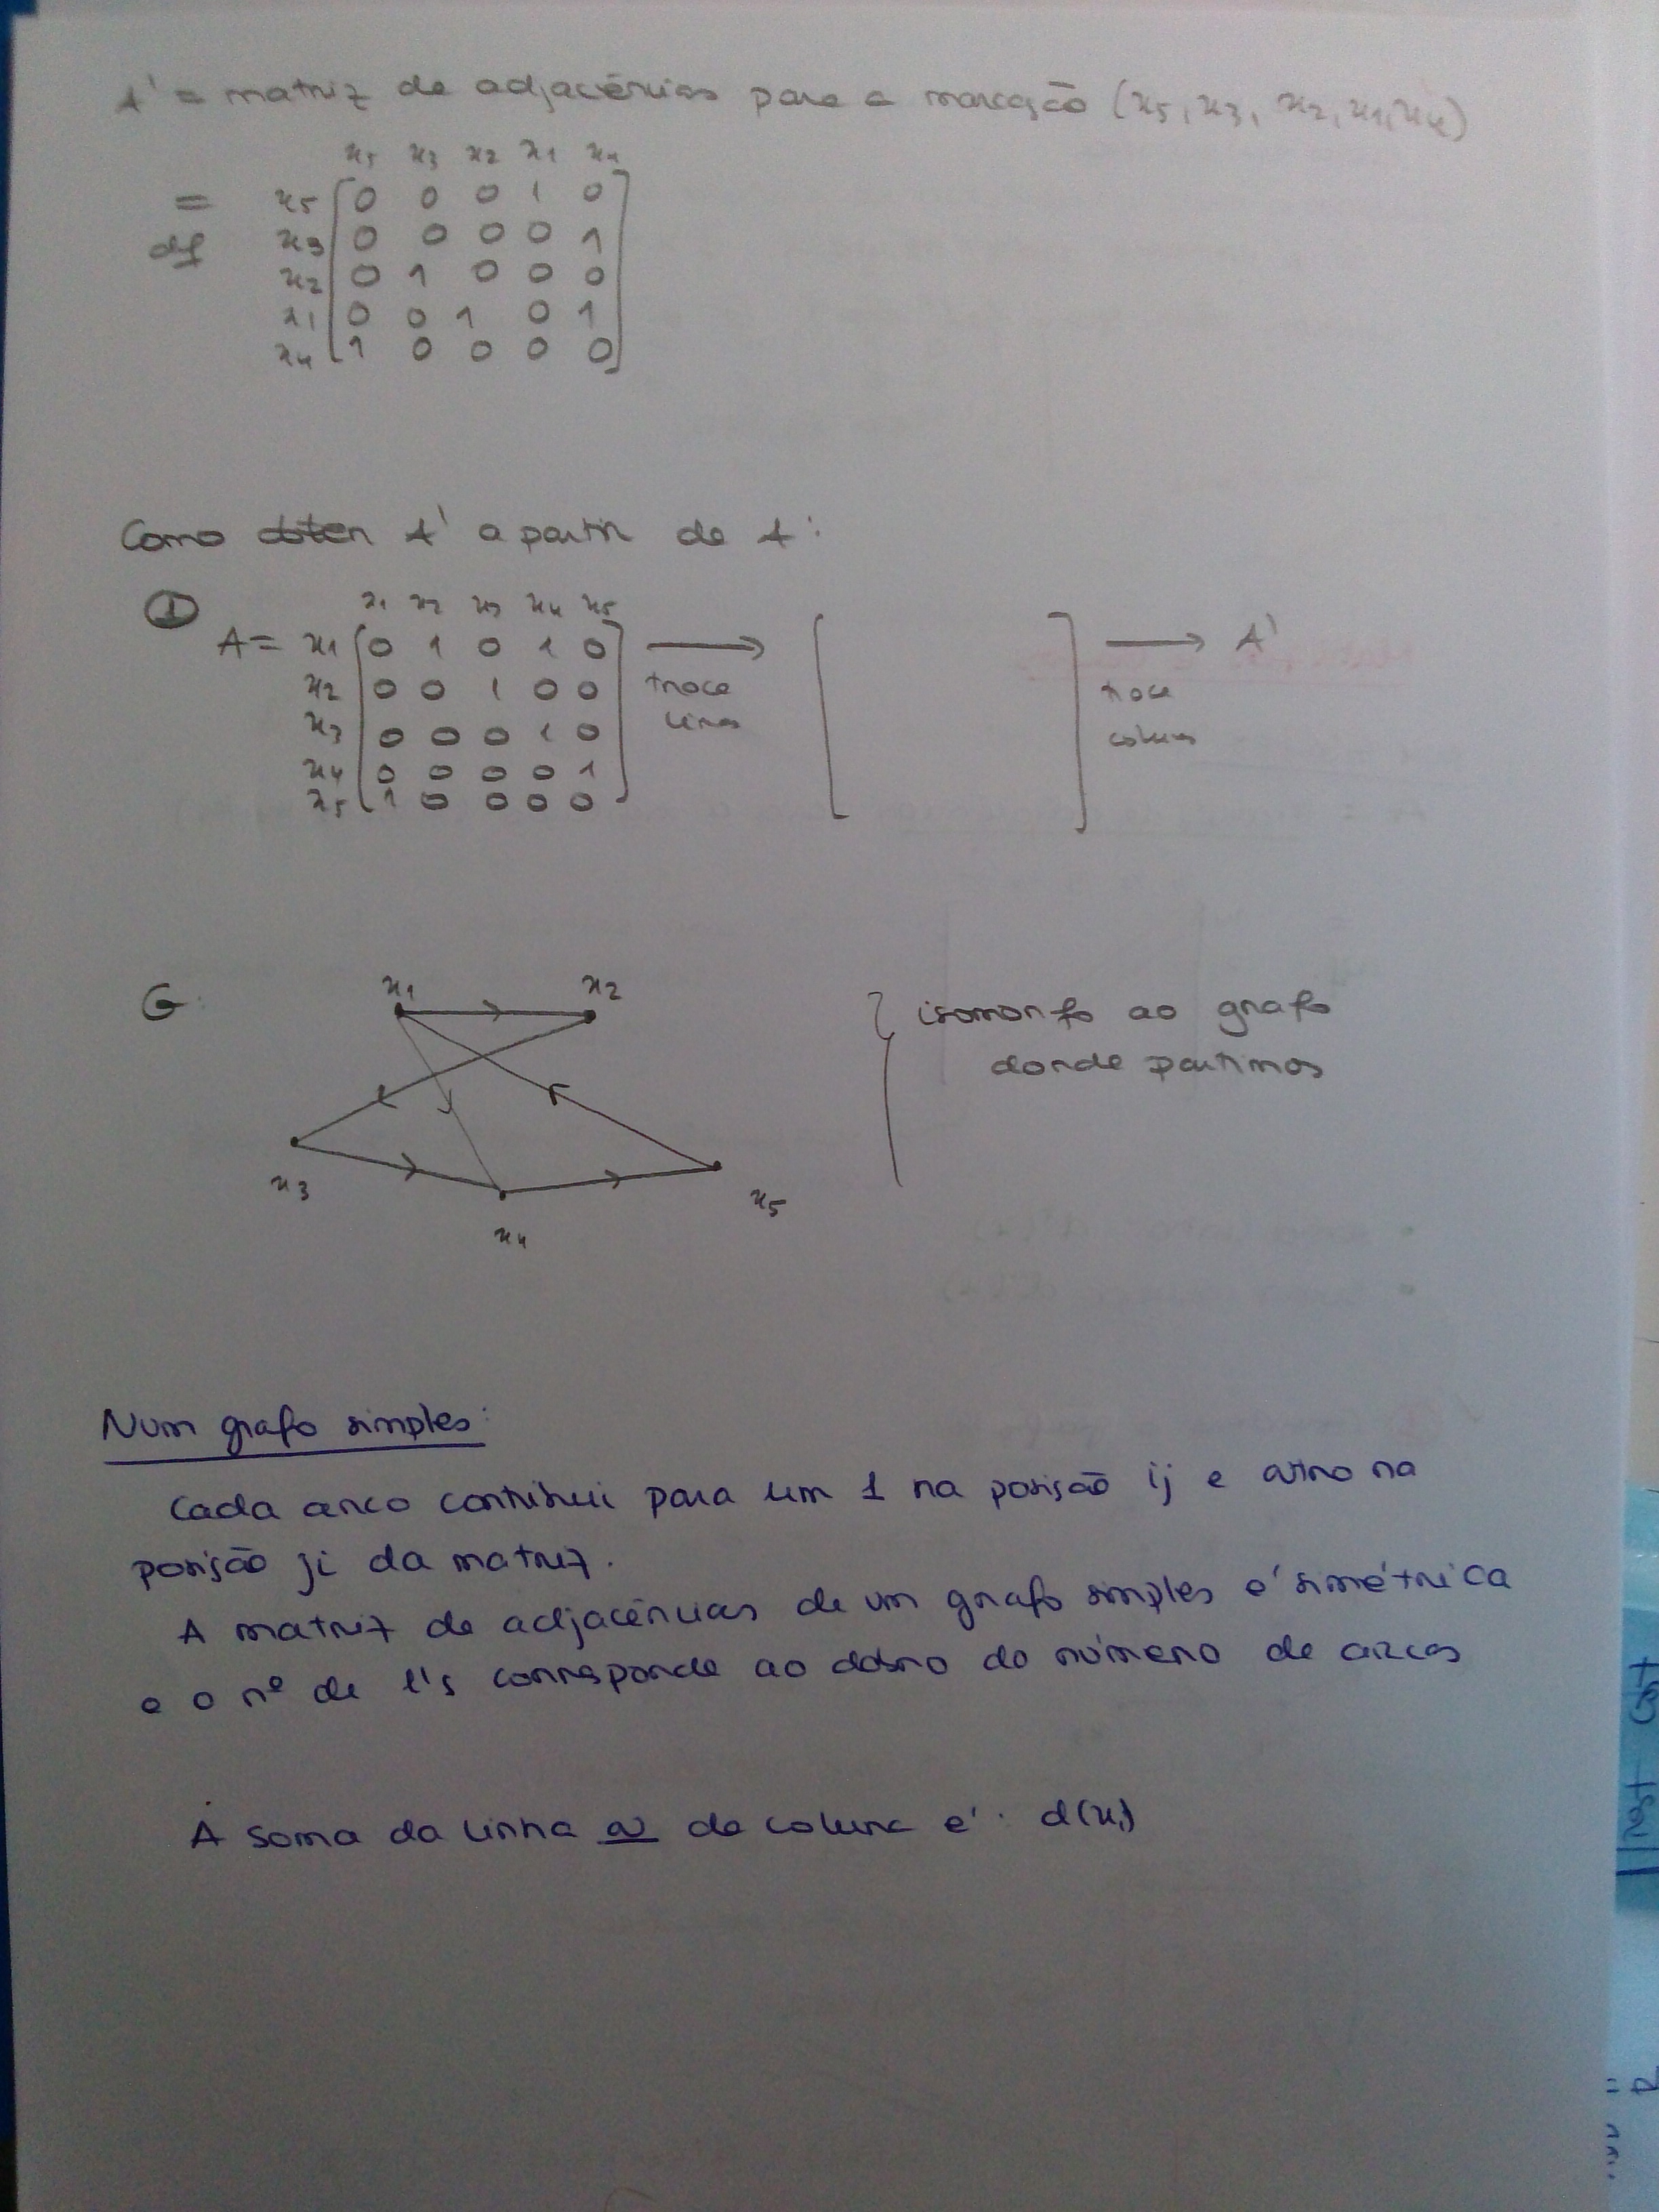 A' = matriz de adjacências para a marcação (x5, x3, x2, x1, x4)
x5 x3 x2 x1 x4
= x5 0 0 0 1 0
df x3 0 0 0 0 1
x2 0 1 0 0 0
x1 0 0 1 0 1
x4 1 0 0 0 0
Como obter A' a partir de A:
1
x1 x2 x3 x4 x5
A = x1 0 1 0 1 0 → → A'
x2 0 0 1 0 0 troca troca
x3 0 0 0 1 0 linhas colunas
x4 0 0 0 0 1
x5 1 0 0 0 0
G: x1 x2
isomorfo ao grafo
donde partimos
x3 x5
x4
Num grafo simples:
Cada arco contribui para um 1 na posição ij e outro na
posição ji da matriz.
A matriz de adjacências de um grafo simples é simétrica
e o nº de 1's corresponde ao dobro do número de arcos
A soma da linha ou da coluna é: d(xi)